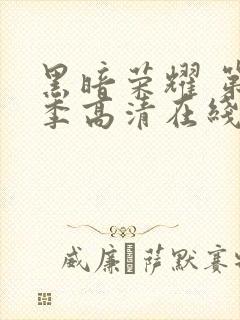 黑暗荣耀 第
季高清在线
威廉·萨默赛